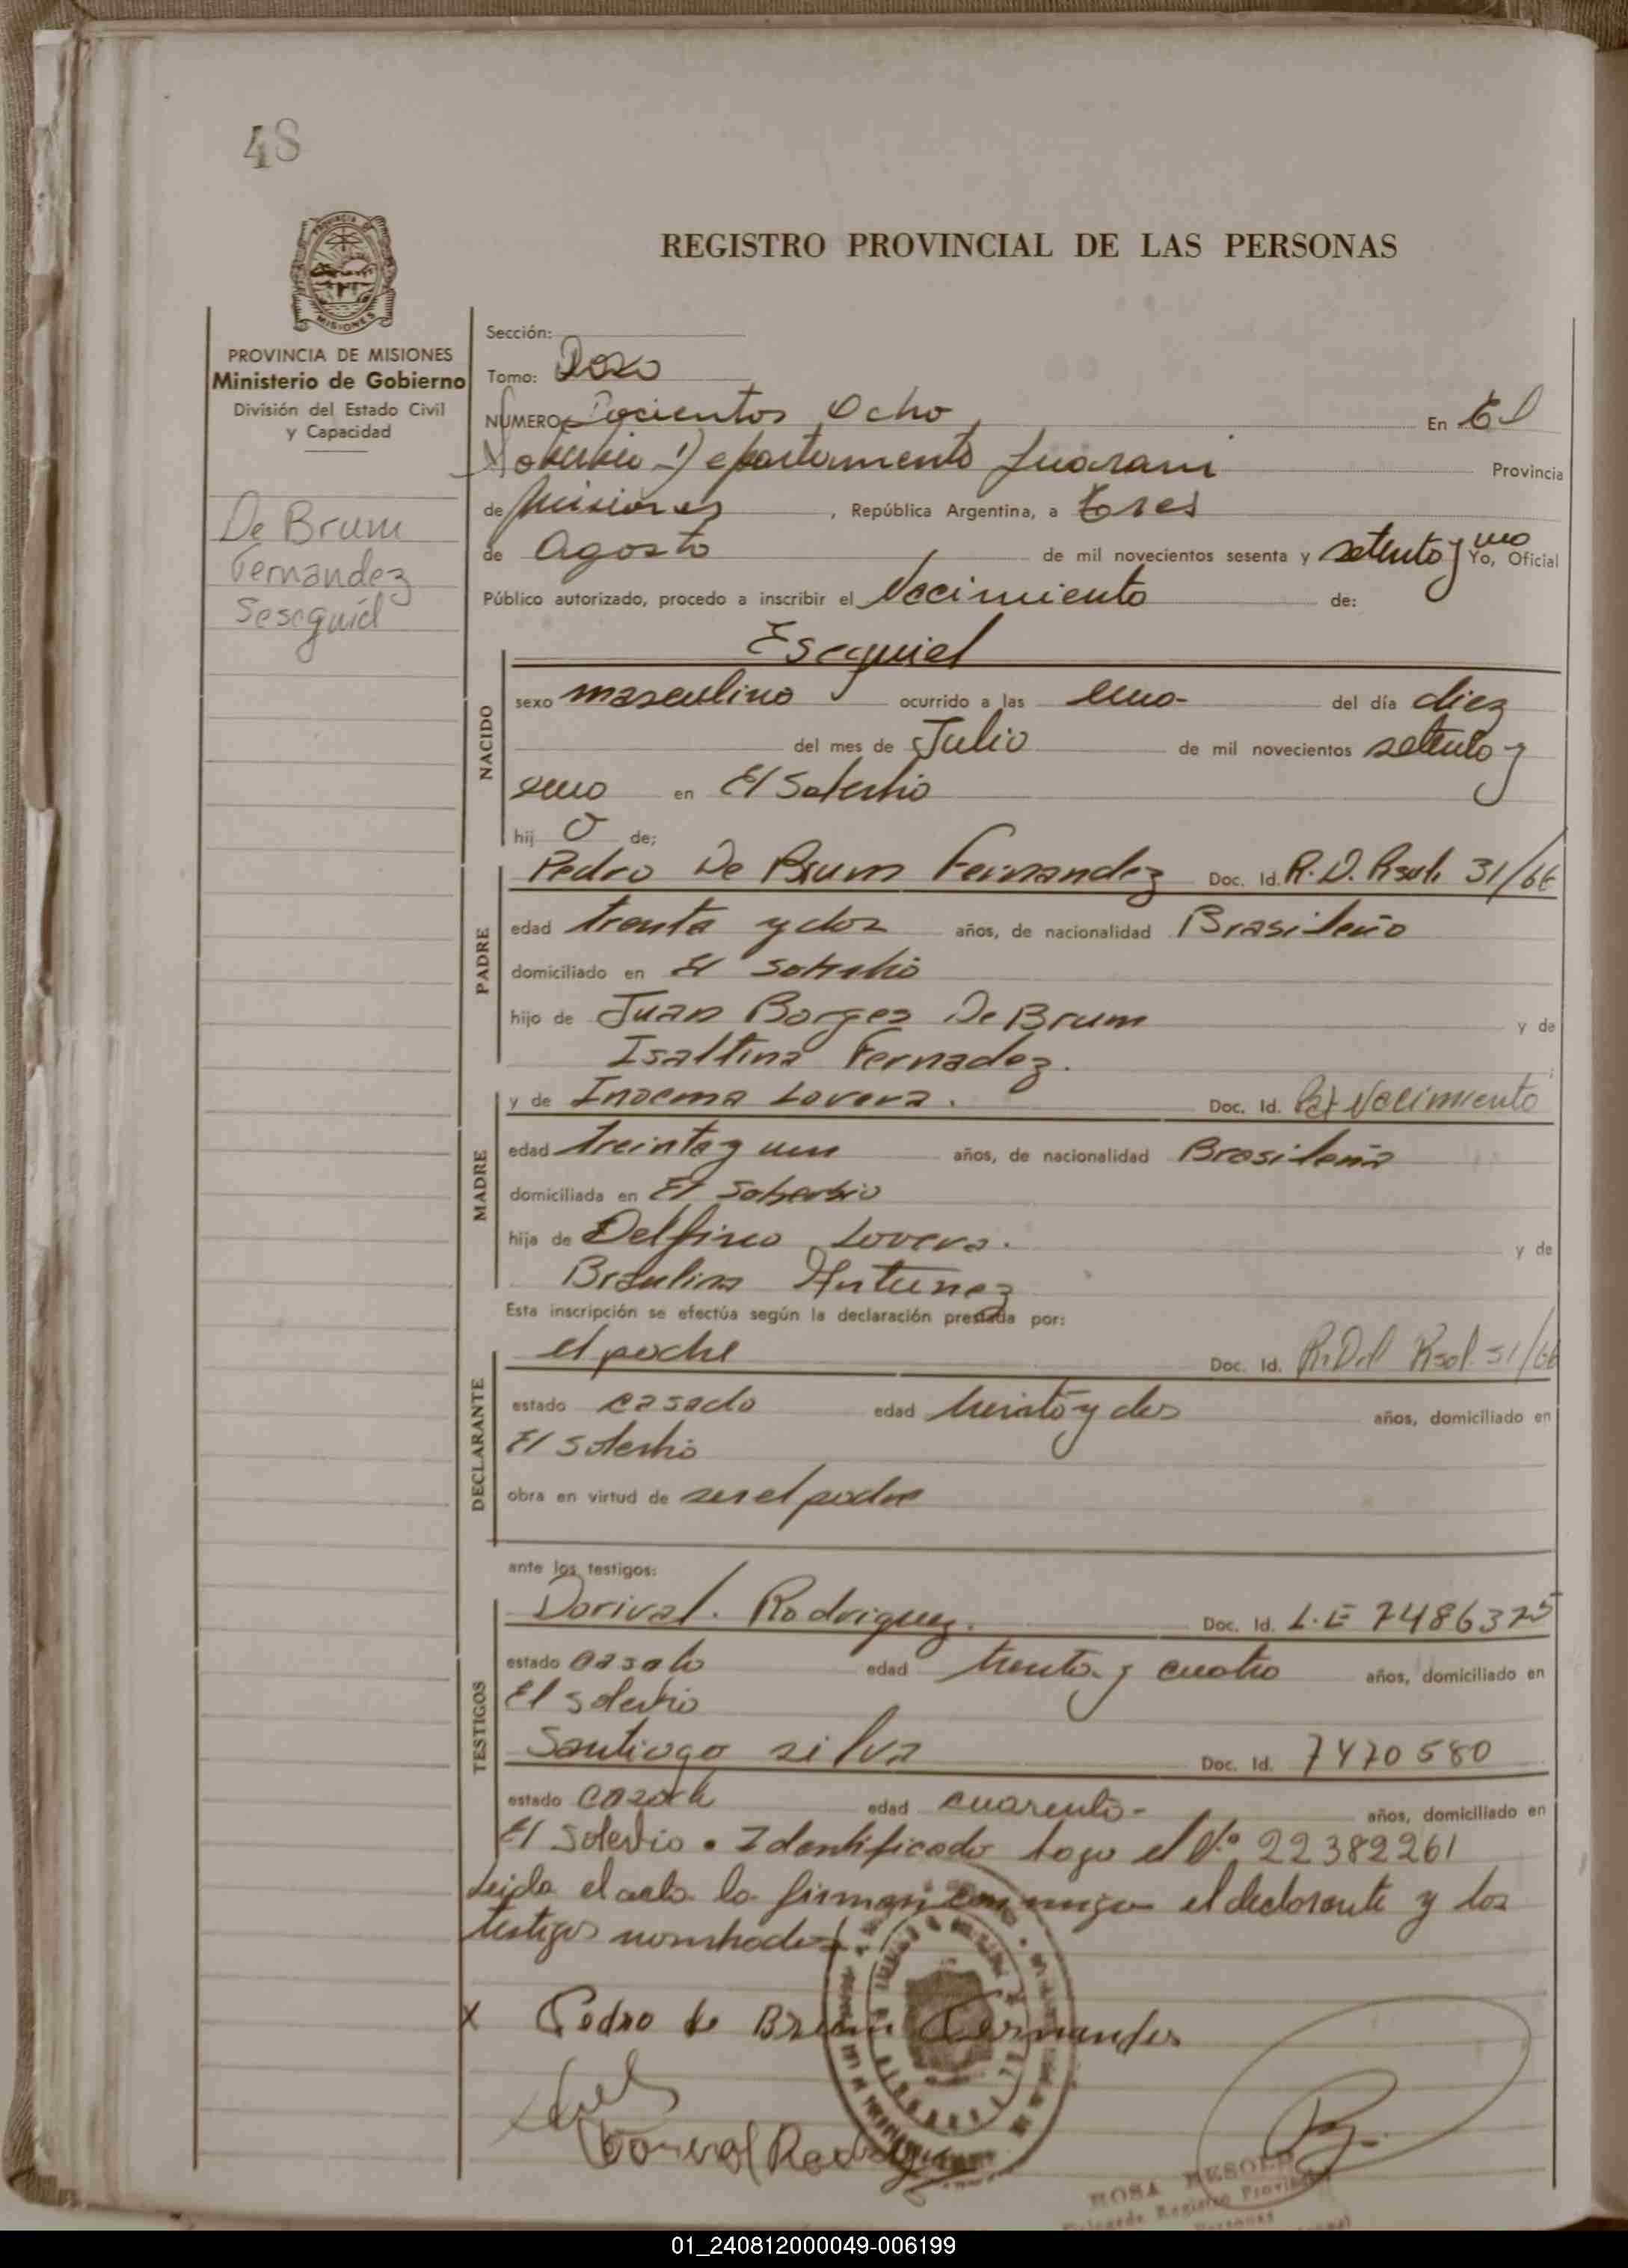 48
REGISTRO PROVINCIAL DE LAS PERSONAS
PROVINCIA DE
MISIONES
PROVINCIA DE MISIONES
Ministerio de Gobierno
División del Estado Civil
y Capacidad
De Brum
Fernandez
Sesequiel
Sección:
Tomo: Doso
NUMERO Docientos Ocho En El
Soberbio Departamento Guarani Provincia
de Misiones, República Argentina, a tres
de Agosto de mil novecientos sesenta y setenta y uno Yo, Oficial
Público autorizado, procedo a inscribir el Nacimiento de:
Esequiel
NACIDO
sexo masculino ocurrido a las uno- del día diez
del mes de Julio de mil novecientos setenta y
uno en El Soberbio
hij o de;
PADRE
Pedro De Brum Fernandez Doc. Id. R.D. Rsol. 31/66
edad trenta y dos años, de nacionalidad Brasileño
domiciliado en El Soberbio
hijo de Juan Borges De Brum y de
Isaltina Fernadez.
MADRE
y de Inoema Lovera. Doc. Id. Nacimiento
edad treinta y un años, de nacionalidad Brasileña
domiciliada en El Soberbio
hija de Delfino Lovera. y de
Braulina Antunez
Esta inscripción se efectúa según la declaración prestada por:
DECLARANTE
el padre Doc. Id. Rsol. 31/66
estado casado edad treinta y dos años, domiciliado en
El Soberbio
obra en virtud de ser el padre
ante los testigos:
TESTIGOS
Dorival. Rodriguez. Doc. Id. L.E 7486375
estado casado edad trenta y cuatro años, domiciliado en
El Soberbio
Santiago silva Doc. Id. 7470580
estado casado edad cuarenta- años, domiciliado en
El Soberbio. Identificado bajo el Nº 22382261
Leida el acta la firman conmigo el declarante y los
testigos nombrados.
x Pedro de Brum Fernandes
Dorival Rodriguez
ROSA
Registro Provincial
Personas
01_240812000049-006199